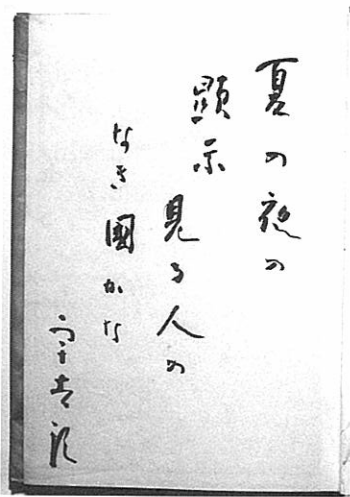 夏の夜の
顕示
見る人の
なき國かな
宇吉郎